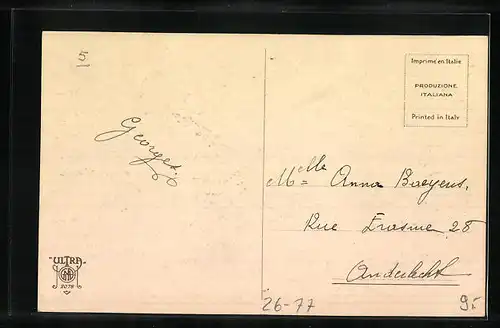 5
Imprimé en Italie
PRODUZIONE
ITALIANA
Printed in Italy
Georges.
Melle Anna Baeyens,
Rue Erasme, 28
Anderlecht
"ULTRA"
2078
26-77
9.-